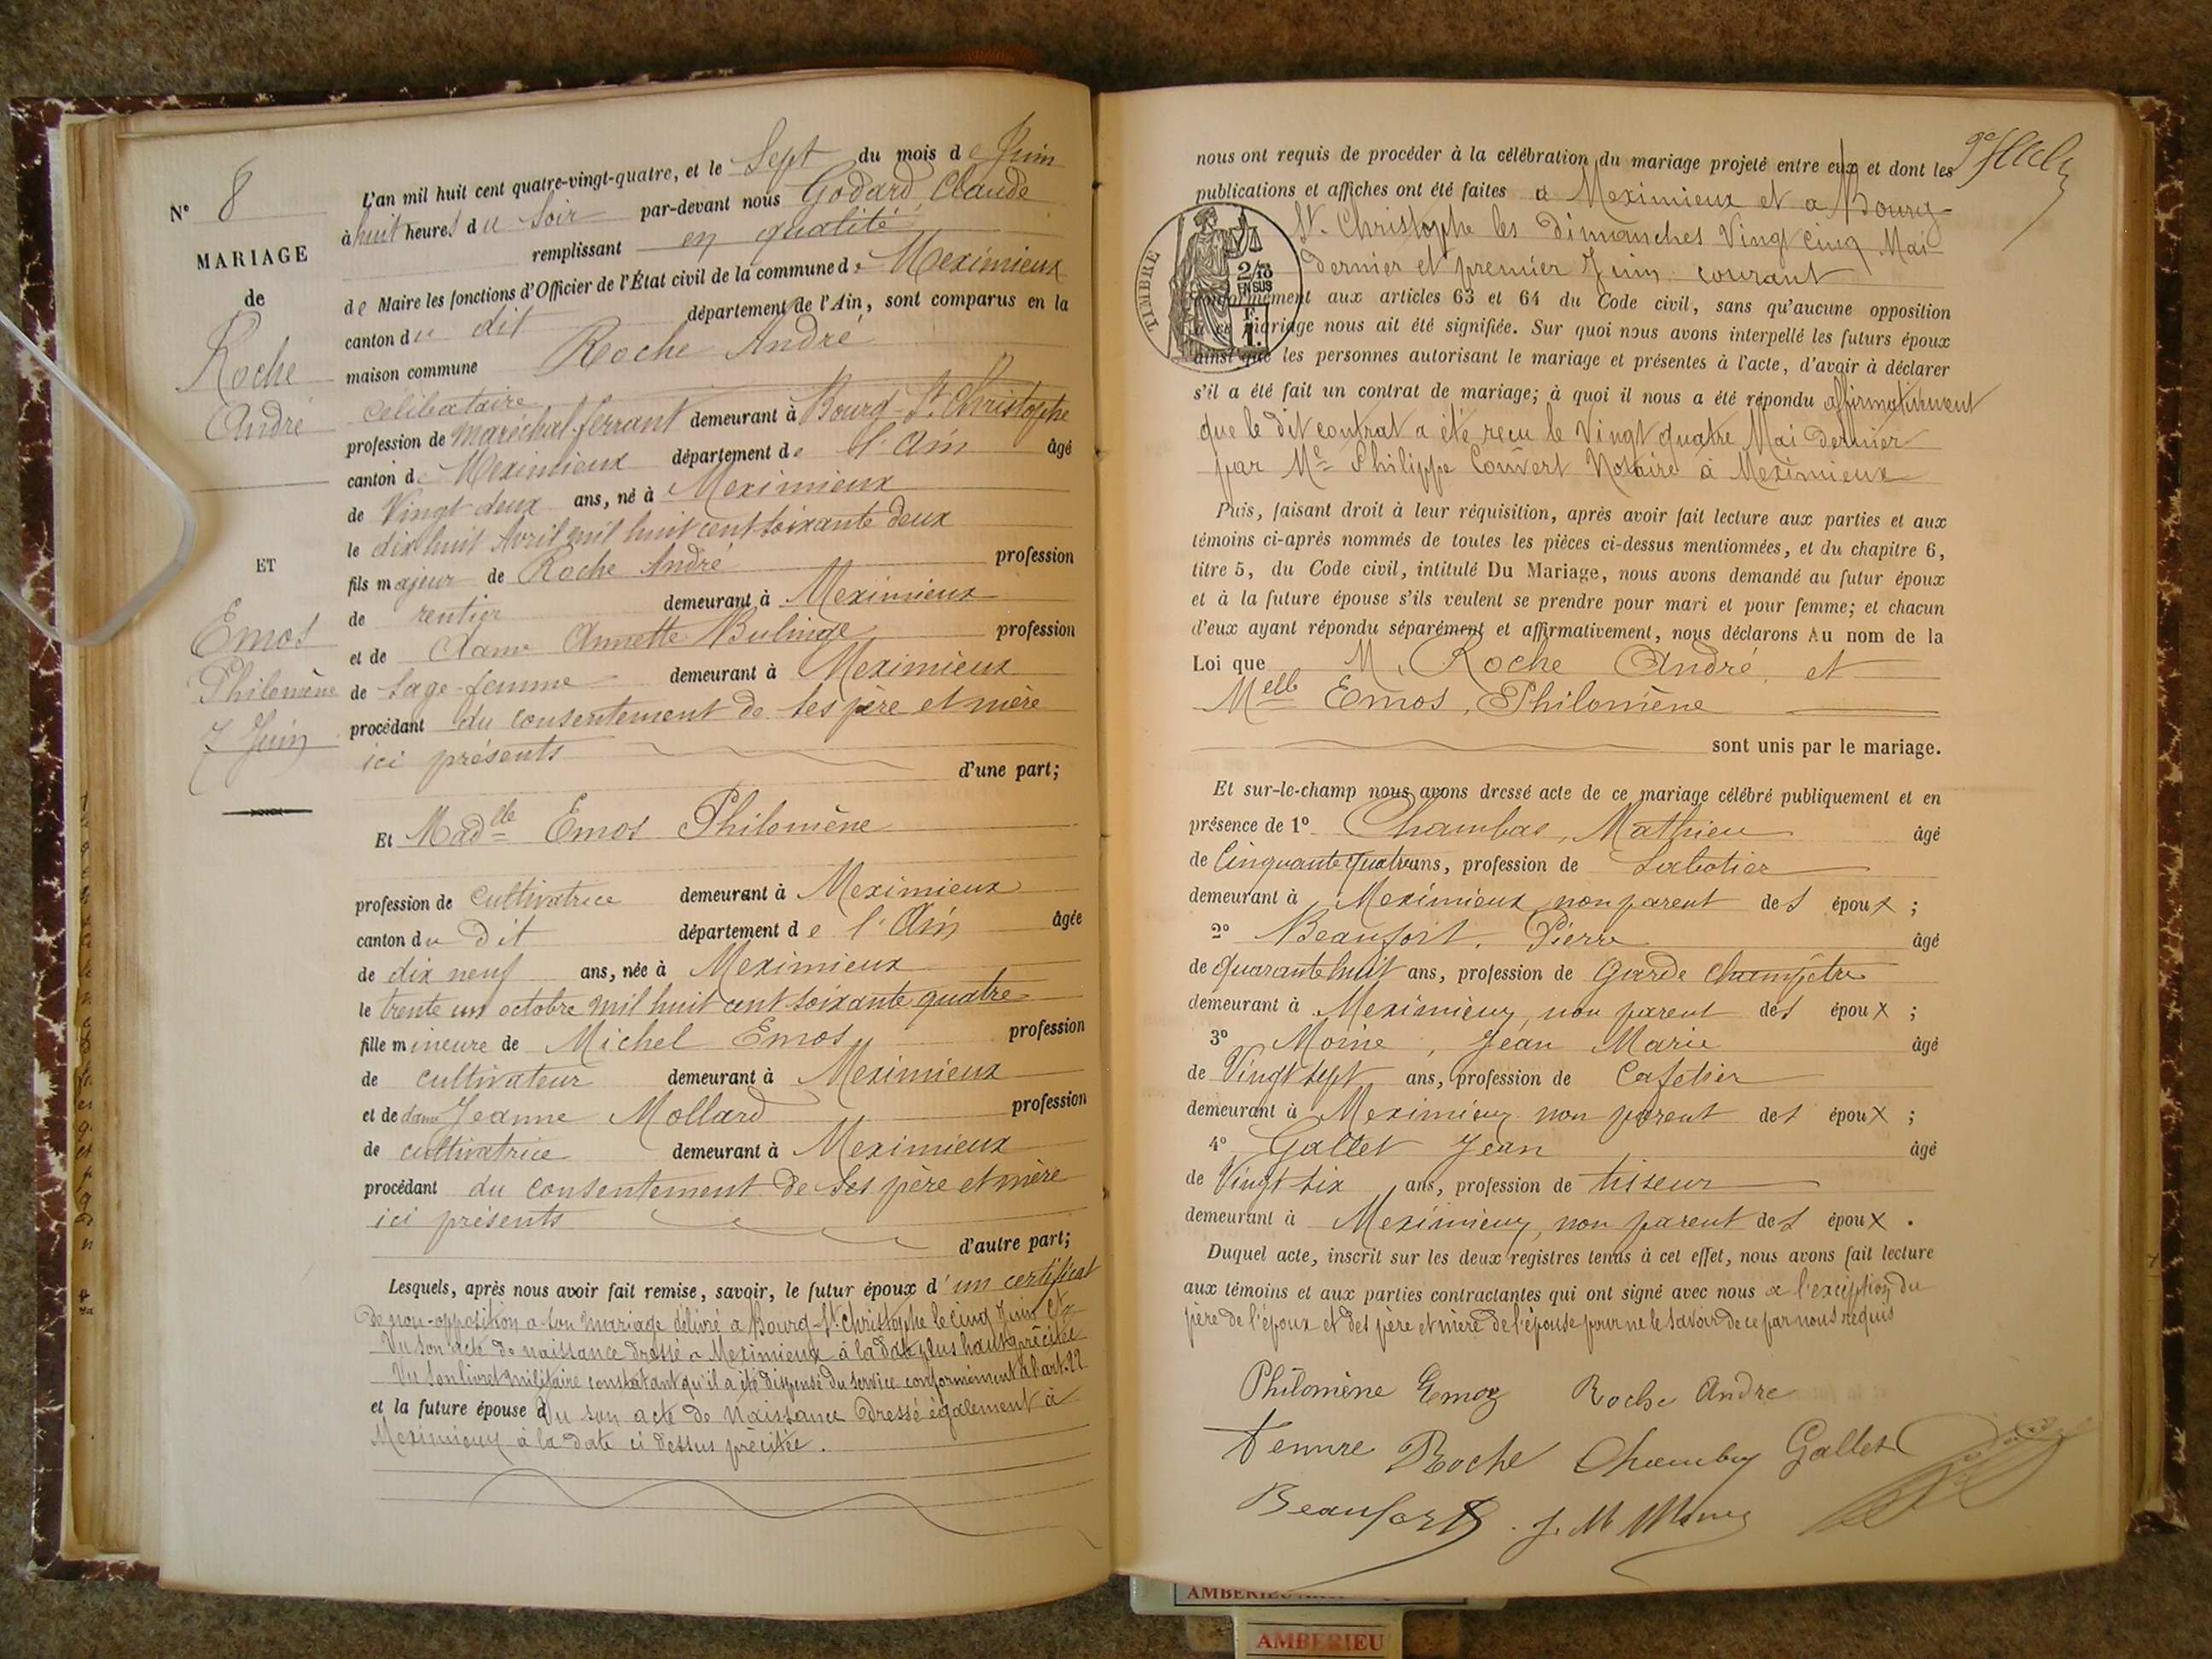 N° 8
MARIAGE
de
Roche
André
ET
Emos
Philomène
7 Juin
L'an mil huit cent quatre-vingt-quatre, et le Sept du mois de Juin
à huit heures du Soir par-devant nous Godard, Claude
remplissant en qualité
de Maire les fonctions d'Officier de l'État civil de la commune de Meximieux
canton du dit département de l'Ain, sont comparus en la
maison commune Roche André
célibataire
profession de maréchal-ferrant demeurant à Bourg-St-Christophe
canton de Meximieux département de l'Ain âgé
de Vingt deux ans, né à Meximieux
le dix huit Avril mil huit cent soixante deux
fils majeur de Roche André profession
de rentier demeurant à Meximieux
et de dame Annette Bulinge profession
de sage-femme demeurant à Meximieux
procédant du consentement de ses père et mère
ici présents
d'une part;
Et Madelle Emos Philomène
profession de cultivatrice demeurant à Meximieux
canton du dit département de l'Ain âgée
de dix neuf ans, née à Meximieux
le trente un octobre mil huit cent soixante quatre
fille mineure de Michel Emos profession
de cultivateur demeurant à Meximieux
et de dame Jeanne Mollard profession
de cultivatrice demeurant à Meximieux
procédant du consentement de ses père et mère
ici présents
d'autre part;
Lesquels, après nous avoir fait remise, savoir, le futur époux d'un certificat
de non-opposition a son mariage délivré a Bourg-St-Christophe le cinq Juin ct
Vu son acte de naissance dressé a Meximieux à la date plus haut précitée
Vu son livret militaire constatant qu'il a été dispensé du service conformément à l'art. 22
et la future épouse d Vu son acte de Naissance dressé également à
Meximieux à la date ci dessus précitée.
nous ont requis de procéder à la célébration du mariage projeté entre eux et dont les
publications et affiches ont été faites a Meximieux et a Bourg-
St. Christophe les Dimanches Vingt cinq Mai
dernier et premier Juin courant
TIMBRE
2/10
EN SUS
F.
1.
conformément aux articles 63 et 64 du Code civil, sans qu'aucune opposition
à ce mariage nous ait été signifiée. Sur quoi nous avons interpellé les futurs époux
ainsi que les personnes autorisant le mariage et présentes à l'acte, d'avoir à déclarer
s'il a été fait un contrat de mariage; à quoi il nous a été répondu affirmativement
que le dit contrat a été reçu le Vingt quatre Mai dernier
par Me Philippe Couvert Notaire à Meximieux
Puis, faisant droit à leur réquisition, après avoir fait lecture aux parties et aux
témoins ci-après nommés de toutes les pièces ci-dessus mentionnées, et du chapitre 6,
titre 5, du Code civil, intitulé Du Mariage, nous avons demandé au futur époux
et à la future épouse s'ils veulent se prendre pour mari et pour femme; et chacun
d'eux ayant répondu séparément et affirmativement, nous déclarons Au nom de la
Loi que M. Roche André et
Melle Emos, Philomène
sont unis par le mariage.
Et sur-le-champ nous avons dressé acte de ce mariage célébré publiquement et en
présence de 1° Chambas, Mathieu âgé
de Cinquante quatre ans, profession de Sabotier
demeurant à Meximieux, non parent des époux ;
2° Beaufort, Pierre âgé
de quarante huit ans, profession de Garde Champêtre
demeurant à Meximieux, non parent des époux ;
3° Moine, Jean Marie âgé
de Vingt sept ans, profession de Cafetier
demeurant à Meximieux non parent des époux ;
4° Gallet Jean âgé
de Vingt six ans, profession de tiseur
demeurant à Meximieux, non parent des époux .
Duquel acte, inscrit sur les deux registres tenus à cet effet, nous avons fait lecture
aux témoins et aux parties contractantes qui ont signé avec nous a l'exception du
père de l'époux et des père et mère de l'épouse pour ne le savoir de ce par nous requis
Philomène Emoz Roche André
femme Roche Chambas Gallet
Beaufort J. M Moine
AMBERIEU
AMBERIEU